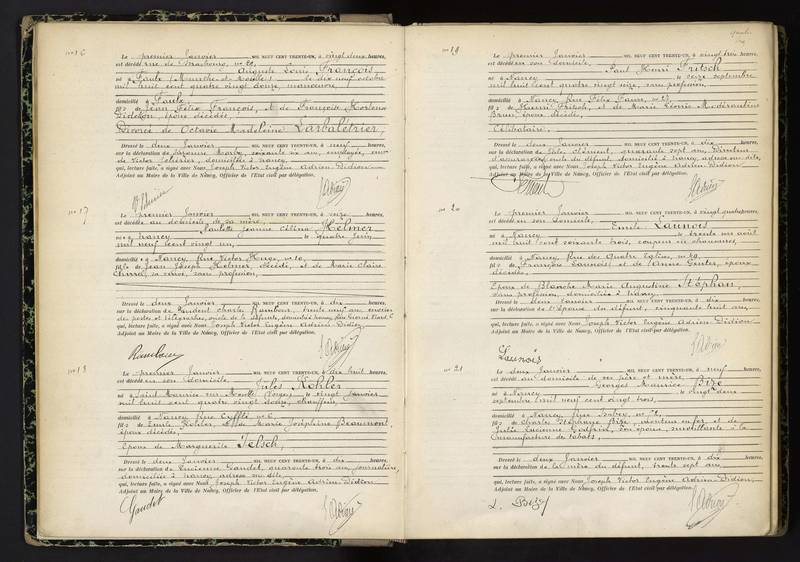 N° 16
Le premier Janvier MIL NEUF CENT TRENTE-UN, à vingt deux heures,
est décédé rue de Strasbourg, n° 29,
Auguste Louis François,
né à Faulx (Meurthe et Moselle) le dix neuf octobre
mil huit cent quatre vingt douze, manœuvre,
domicilié à Faulx,
fils de Jean Félix François, et de François Hortense
Didelon, époux décédés,
Divorcé de Octavie Madeleine Larbalétrier,
Dressé le deux Janvier à neuf heures,
sur la déclaration de Suzanne Marly, soixante six ans, employée, rue
de Victor Poirel, domiciliée à Nancy,
qui, lecture faite, a signé avec Nous Joseph Victor Eugène Adrien-Didion
Adjoint au Maire de la Ville de Nancy, Officier de l'Etat civil par délégation.
N° 17
Le premier Janvier MIL NEUF CENT TRENTE-UN, à seize heures,
est décédée au domicile de sa mère,
Paulette Jeanne Célina Helmer
née à Nancy le quatre Juin
mil neuf cent vingt un,
domiciliée à Nancy Rue Victor Hugo, n° 10,
fille de Jean Joseph Helmer, décédé, et de Marie Claire
sa veuve, sans profession,
Dressé le deux Janvier MIL NEUF CENT TRENTE-UN, à dix heures,
sur la déclaration de Prudent Charles Rambour, trente neuf ans,
des postes et télégraphes, oncle de la défunte, domicilié à Nancy,
qui, lecture faite, a signé avec Nous Joseph Victor Eugène Adrien-Didion
Adjoint au Maire de la Ville de Nancy, Officier de l'Etat civil par délégation.
Rambour
N° 18
Le premier Janvier MIL NEUF CENT TRENTE-UN, à dix huit heures,
est décédé en son domicile
Jules Kohler
né à Saint Maurice sur Moselle (Vosges) le vingt Janvier
mil huit cent quatre vingt douze, chauffeur,
domicilié à Nancy Rue n° 6,
fils de Emile Kohler, et de Marie Joséphine Beaumont,
époux décédés,
Epoux de Marguerite
Dressé le deux Janvier MIL NEUF CENT TRENTE-UN, à dix heures,
sur la déclaration de Lucienne Gaudet, quarante trois ans, journalière,
domiciliée à Nancy,
qui, lecture faite, a signé avec Nous Joseph Victor Eugène Adrien-Didion
Adjoint au Maire de la Ville de Nancy, Officier de l'Etat civil par délégation.
Gaudet
N° 19
Le premier Janvier MIL NEUF CENT TRENTE-UN, à vingt trois heures,
est décédé en son domicile,
Paul Henri Fritsch
né à Nancy le seize septembre
mil huit cent quatre vingt seize, sans profession,
domicilié à Nancy Rue Félix Faure, n° 27,
fils de Henri Fritsch, et de Marie Léonie Modérantine
Brun, époux décédés,
Célibataire,
Dressé le deux Janvier MIL NEUF CENT TRENTE-UN, à dix heures,
sur la déclaration de Jules Clément, quarante sept ans, Directeur
d'assurances, oncle du défunt, domicilié à Nancy,
qui, lecture faite, a signé avec Nous Joseph Victor Eugène Adrien-Didion
Adjoint au Maire de la Ville de Nancy, Officier de l'Etat civil par délégation.
N° 20
Le premier Janvier MIL NEUF CENT TRENTE-UN, à vingt quatre heures,
est décédé en son domicile,
Emile Launois
né à Nancy le trente un août
mil huit cent soixante trois, coupeur en chaussures,
domicilié à Nancy, Rue des Quatre Eglises, n° 49,
fils de François Launois et de Anne Geuter, époux
décédés,
Epoux de Blanche Marie Augustine Stéphan,
sans profession, domiciliée à Nancy,
Dressé le deux Janvier MIL NEUF CENT TRENTE-UN, à dix heures,
sur la déclaration de l'épouse du défunt, cinquante huit ans
qui, lecture faite, a signé avec Nous Joseph Victor Eugène Adrien-Didion
Adjoint au Maire de la Ville de Nancy, Officier de l'Etat civil par délégation.
Launois
N° 21
Le deux Janvier MIL NEUF CENT TRENTE-UN, à neuf heures,
est décédé au domicile de ses père et mère,
Georges Maurice Bize
né à Nancy le vingt deux
septembre mil neuf cent vingt trois,
domicilié à Nancy, Rue n° 72,
fils de Charles Stéphane Bize, monteur en fer, et de
Julie Lucienne Godfrin, son épouse, à la
manufacture de tabacs,
Dressé le deux Janvier MIL NEUF CENT TRENTE-UN, à dix heures,
sur la déclaration de la mère du défunt, trente sept ans
qui, lecture faite, a signé avec Nous Joseph Victor Eugène Adrien-Didion
Adjoint au Maire de la Ville de Nancy, Officier de l'Etat civil par délégation.